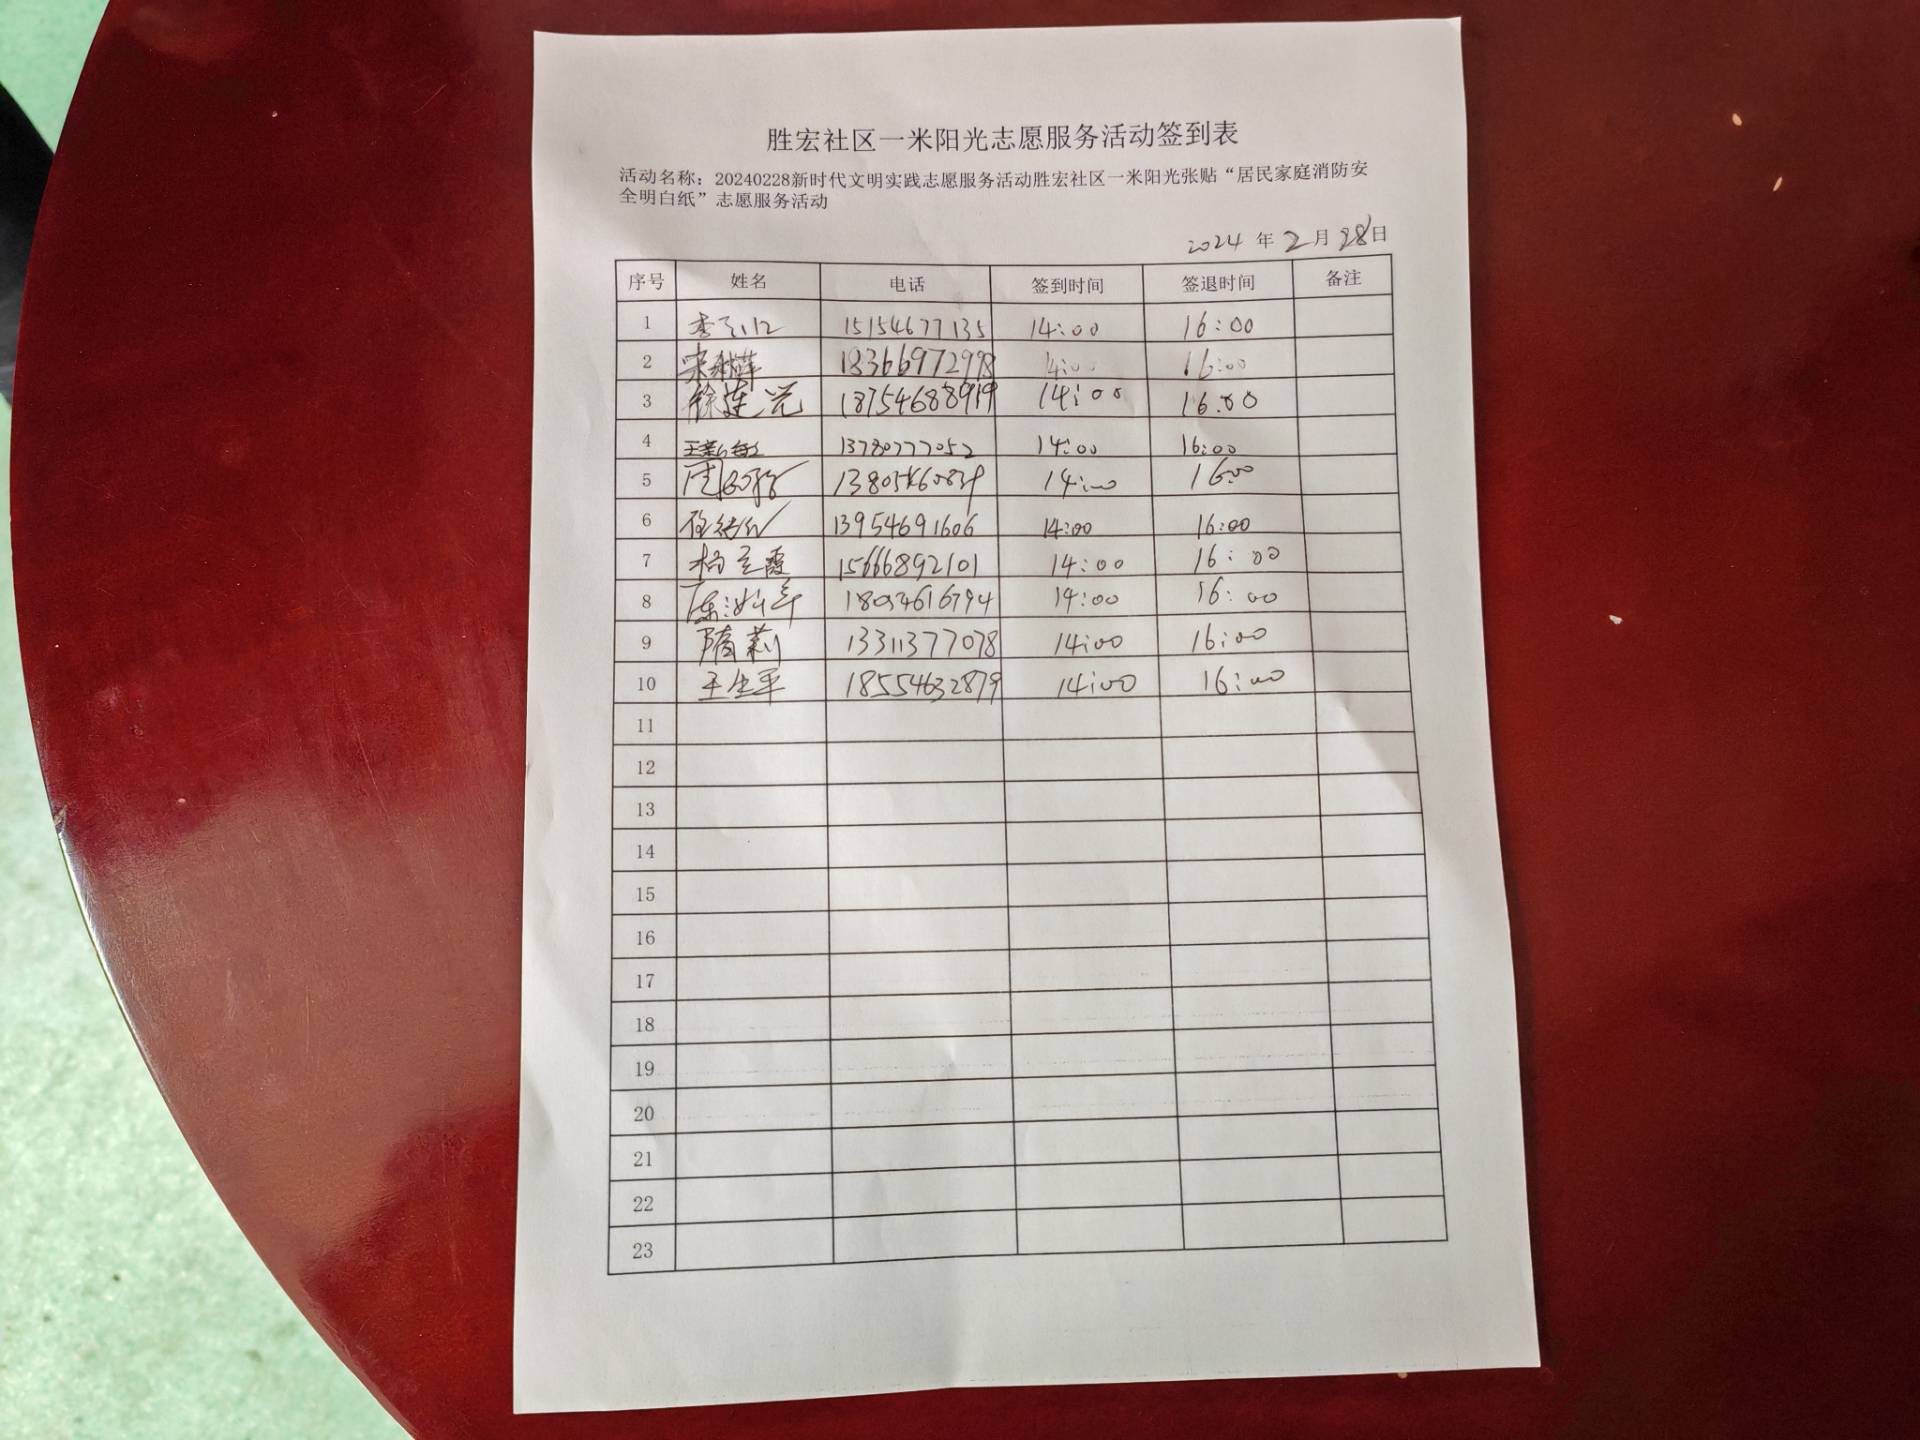 胜宏社区一米阳光志愿服务活动签到表
活动名称：20240228新时代文明实践志愿服务活动胜宏社区一米阳光张贴“居民家庭消防安
全明白纸”志愿服务活动
2024 年 2 月 28 日
序号 姓名 电话 签到时间 签退时间 备注
1 15154677135 14:00 16:00
2 18366972998 14:00 16:00
3 徐连光 18754688919 14:00 16:00
4 王新敏 13780777052 14:00 16:00
5 14:00 16:00
6 13954691606 14:00 16:00
7 杨立霞 15666892101 14:00 16:00
8 14:00 16:00
9 隋莉 13311377078 14:00 16:00
10 王生平 18554632879 14:00 16:00
11
12
13
14
15
16
17
18
19
20
21
22
23